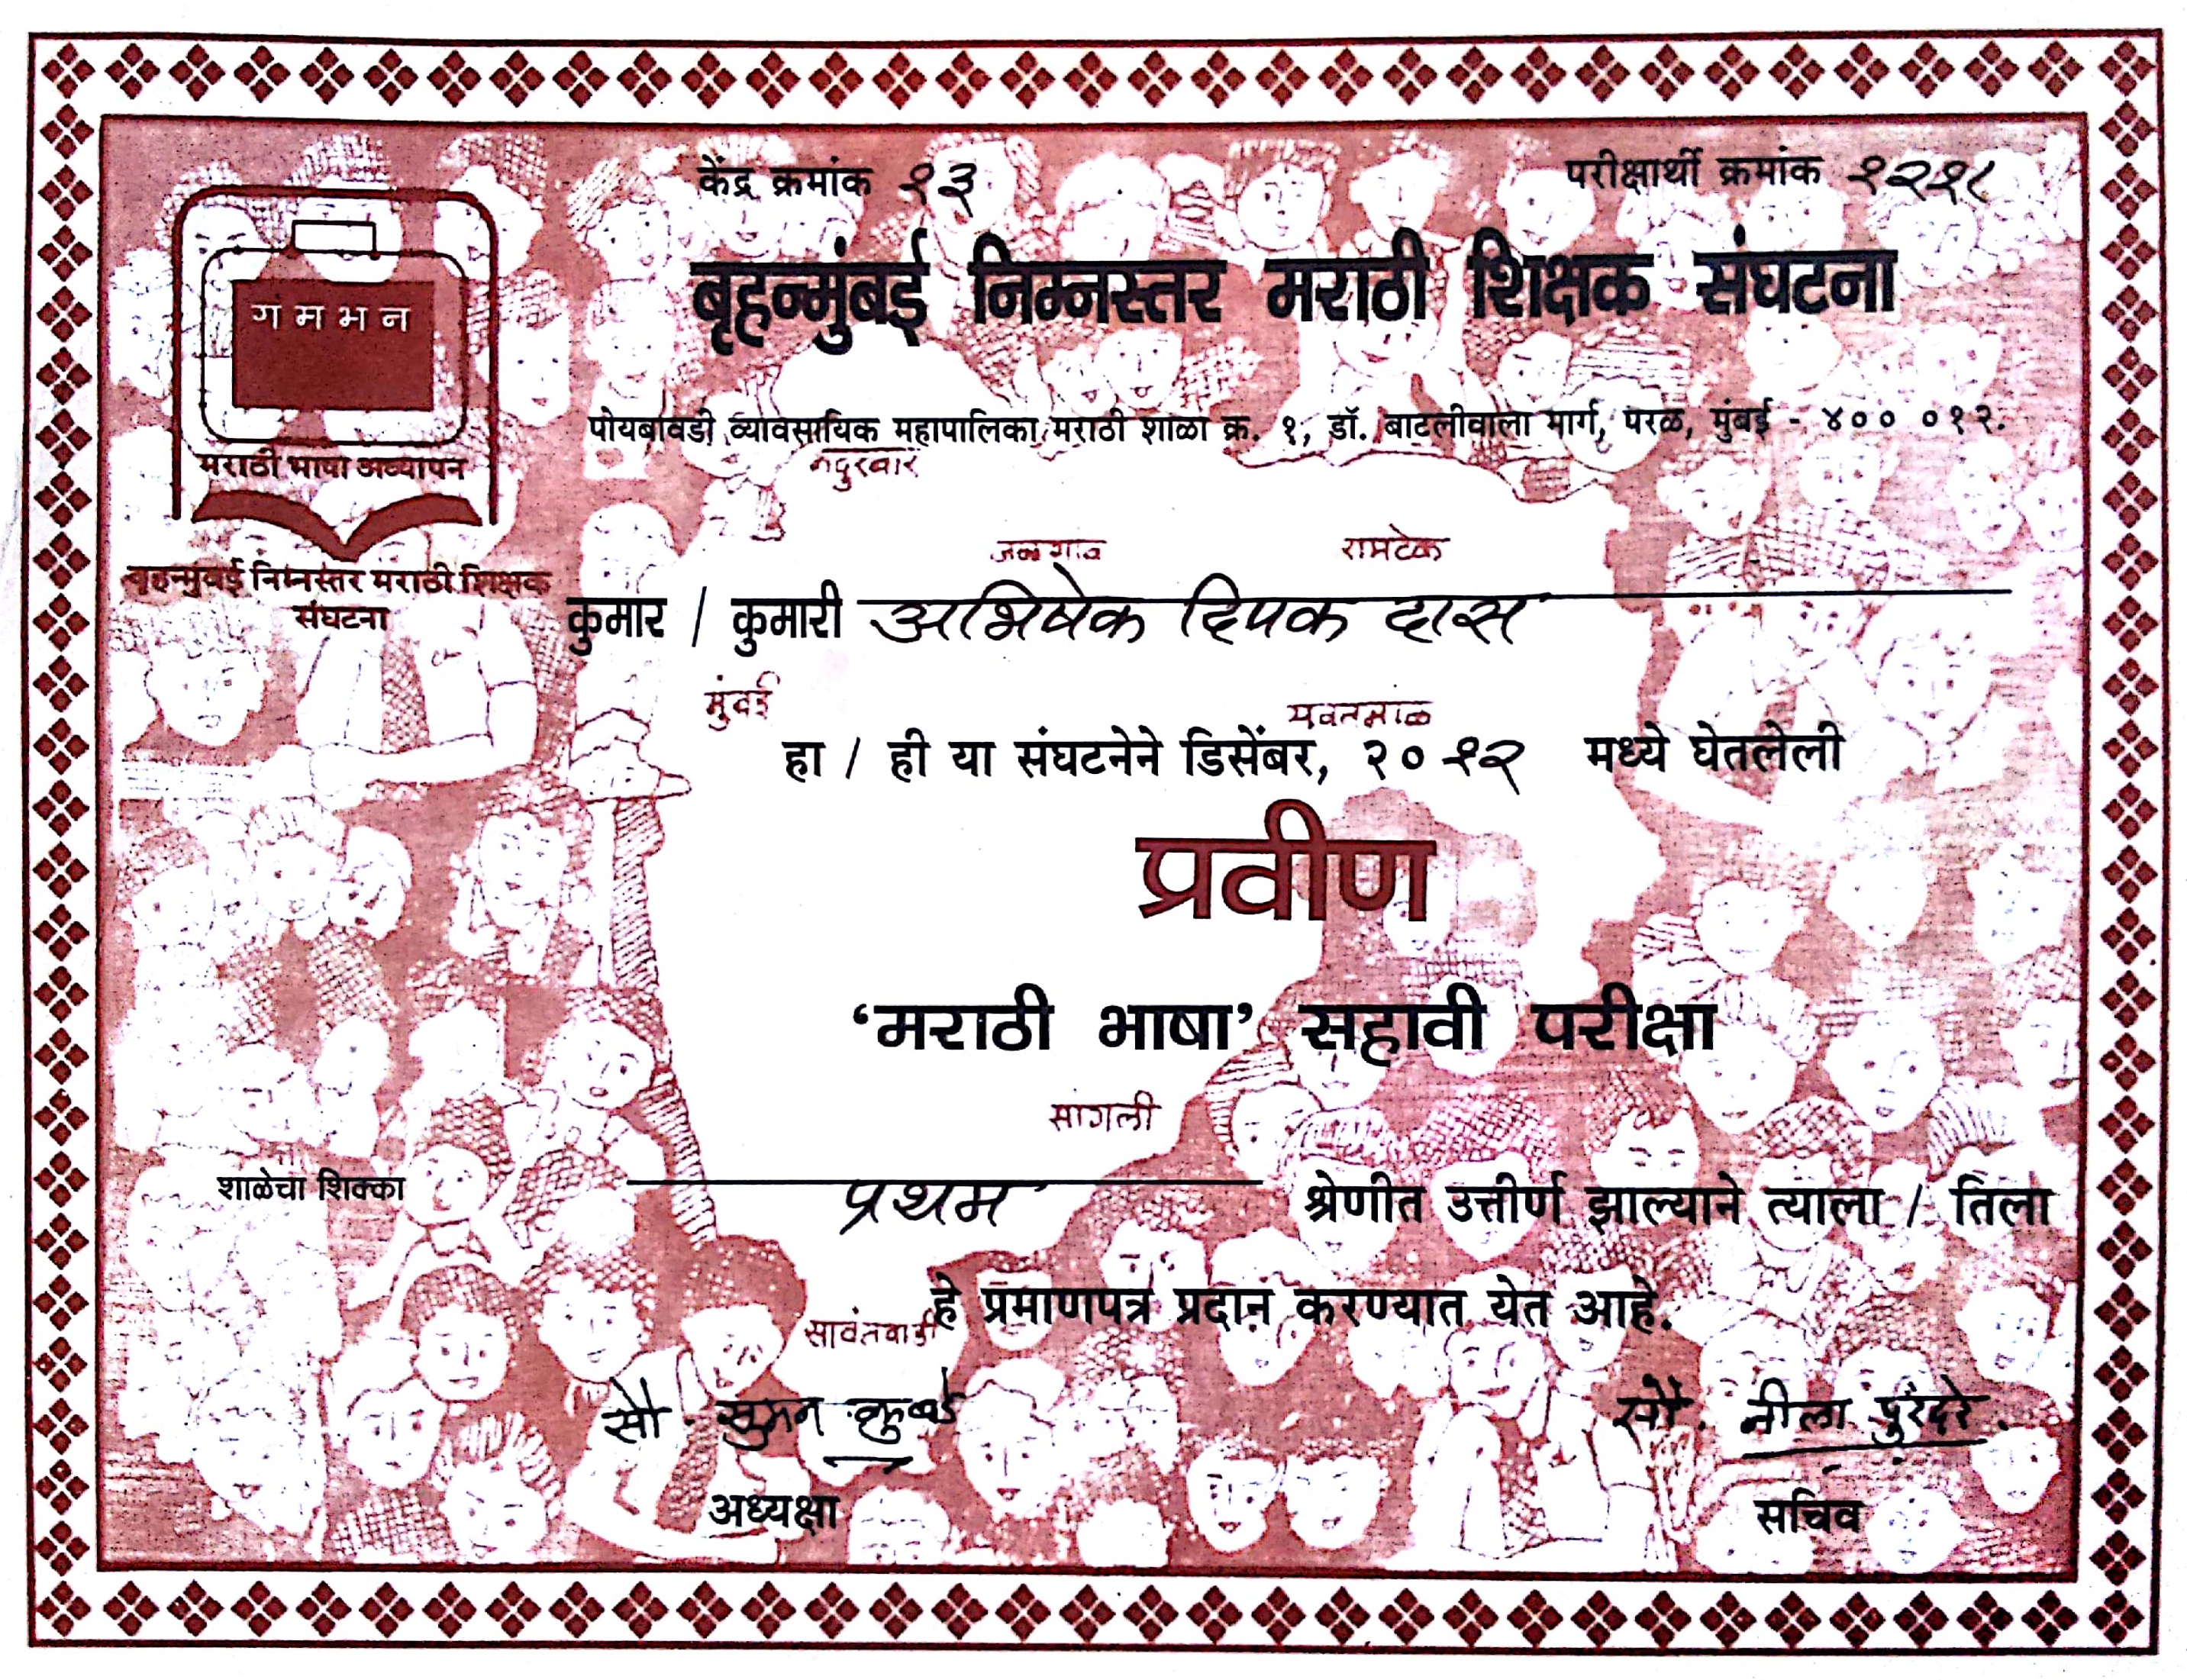 केंद्र क्रमांक १३
परीक्षार्थी क्रमांक
बृहन्मुंबई निम्नस्तर मराठी शिक्षक संघटना
गं म भ न
मराठी भाषा अध्यापन
बृहन्मुंबई निम्नस्तर मराठी शिक्षक
संघटना
पोयबावडी व्यावसायिक महापालिका मराठी शाळा क्र. १, डॉ. बाटलीवाला मार्ग, परळ, मुंबई - ४०० ०१२.
नंदुरबार
जळगाव रामटेक
कुमार / कुमारी अभिषेक दिपक दास
मुंबई यवतमाळ
हा / ही या संघटनेने डिसेंबर, २० १२ मध्ये घेतलेली
प्रवीण
‘मराठी भाषा’ सहावी परीक्षा
सांगली
शाळेचा शिक्का
प्रथम श्रेणीत उत्तीर्ण झाल्याने त्याला / तिला
हे प्रमाणपत्र प्रदान करण्यात येत आहे.
सावंतवाडी
सौ. सुमन
अध्यक्षा
सौ. नीला पुरंदरे.
सचिव